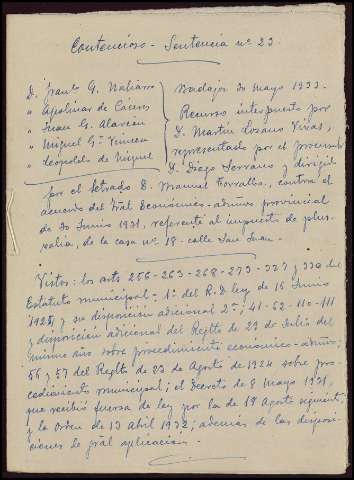 Contencioso - Sentencia nº 23.
D. Franco G. Naharro
" Apolinar de Cáceres
" Juan G. Alarcón
" Miguel Gª Jimeno
" Leopoldo de Miguel
Badajoz 30 mayo 1933.
Recurso interpuesto por
D. Martín Lozano Vivas,
representado por el procurador
D. Diego Serrano y dirigido
por el letrado D. Manuel Torralba, contra el
acuerdo del Tral Económico-admvo provincial
de 30 Junio 1931, referente al impuesto de plus-
valía, de la casa nº 18 - calle San Juan.
Vistos: los arts 256-263-268-273-327 y 330 del
Estatuto municipal; 1º del R.D. ley de 16 Junio
1924 y su disposición adicional 2ª; 41-62-110-111
y disposición adicional del Regltº de 29 de Julio del
mismo año sobre procedimiento económico-admvo;
56 y 57 del Regltº de 23 de Agosto de 1924 sobre pro-
cedimiento municipal; el Decreto de 8 Mayo 1931,
que recibió fuerza de ley por la de 18 Agosto siguiente
y la Orden de 13 Abril 1932; además de las disposi-
ciones de gral aplicación.